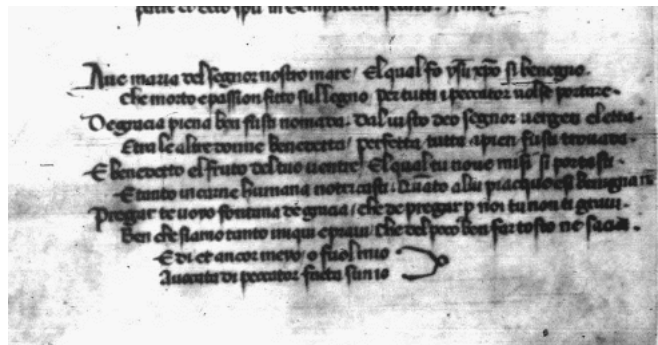 patre et
Aue maria del segnor nostro mare / El qual fo ysu xpo si benegno.
che morto e passion sul legno. per tutti i peccator uolse portare.
De gracia piena ben fusti nomada. Dal iusto deo segnor uergen eletta.
Etra le altre donne benedetta / perfetta, tutta apien fusti trouada.
E benedetto el fruto del tuo uentre / El qual tu noue misi si portasti.
E tanto in carne humana notricasti / a lui piacque esi benigna
Pregar te uoio fontana de gracia / che de pregar p noi tu non ti graui.
Ben che siamo tanto iniqui e praui / che del poco ben far tosto ne sacia.
E di et ancor meyo, o fiol mio
Auocata di peccator facta sun io